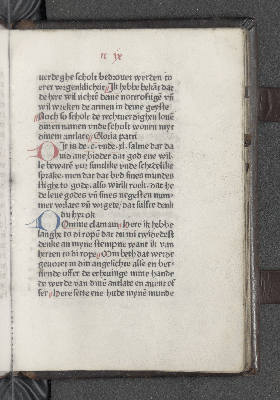 uerdeghe scholt bedrouet werden to
erer wegenklicheit Ik hebbe bekant dat
de here wil richten dene notroftigē vñ
wil wreken de armen in deine geyste
Noch so scholt de rechtuerdighen loue
dinen namen vnde scholt wonen myt
dinem antlate Gloria patri
Dit is de c. vnde xl. salme dar da
uid ane biddet dat god ene wil
le bewarē vor sundlike vnde schedelike
sprake men dat dat bed sines mundes
stighe to gode also wirik rok dat he
de leue godes vñ sines negesten num
mer vorlate vñ vorgete dat sulfte denk
du hyr ok
Domine clamaui Here ik hebbe
langhe to di ropē dat du mi erhordest
denke an myne stempne wan ik van
herten to di rope Min beth dat werde
gevoret in din angesichte alse en ber
nende offer de erheuinge mine hande
de werde van dinē antlate en auent of
fer Here sette ene hude mynē munde